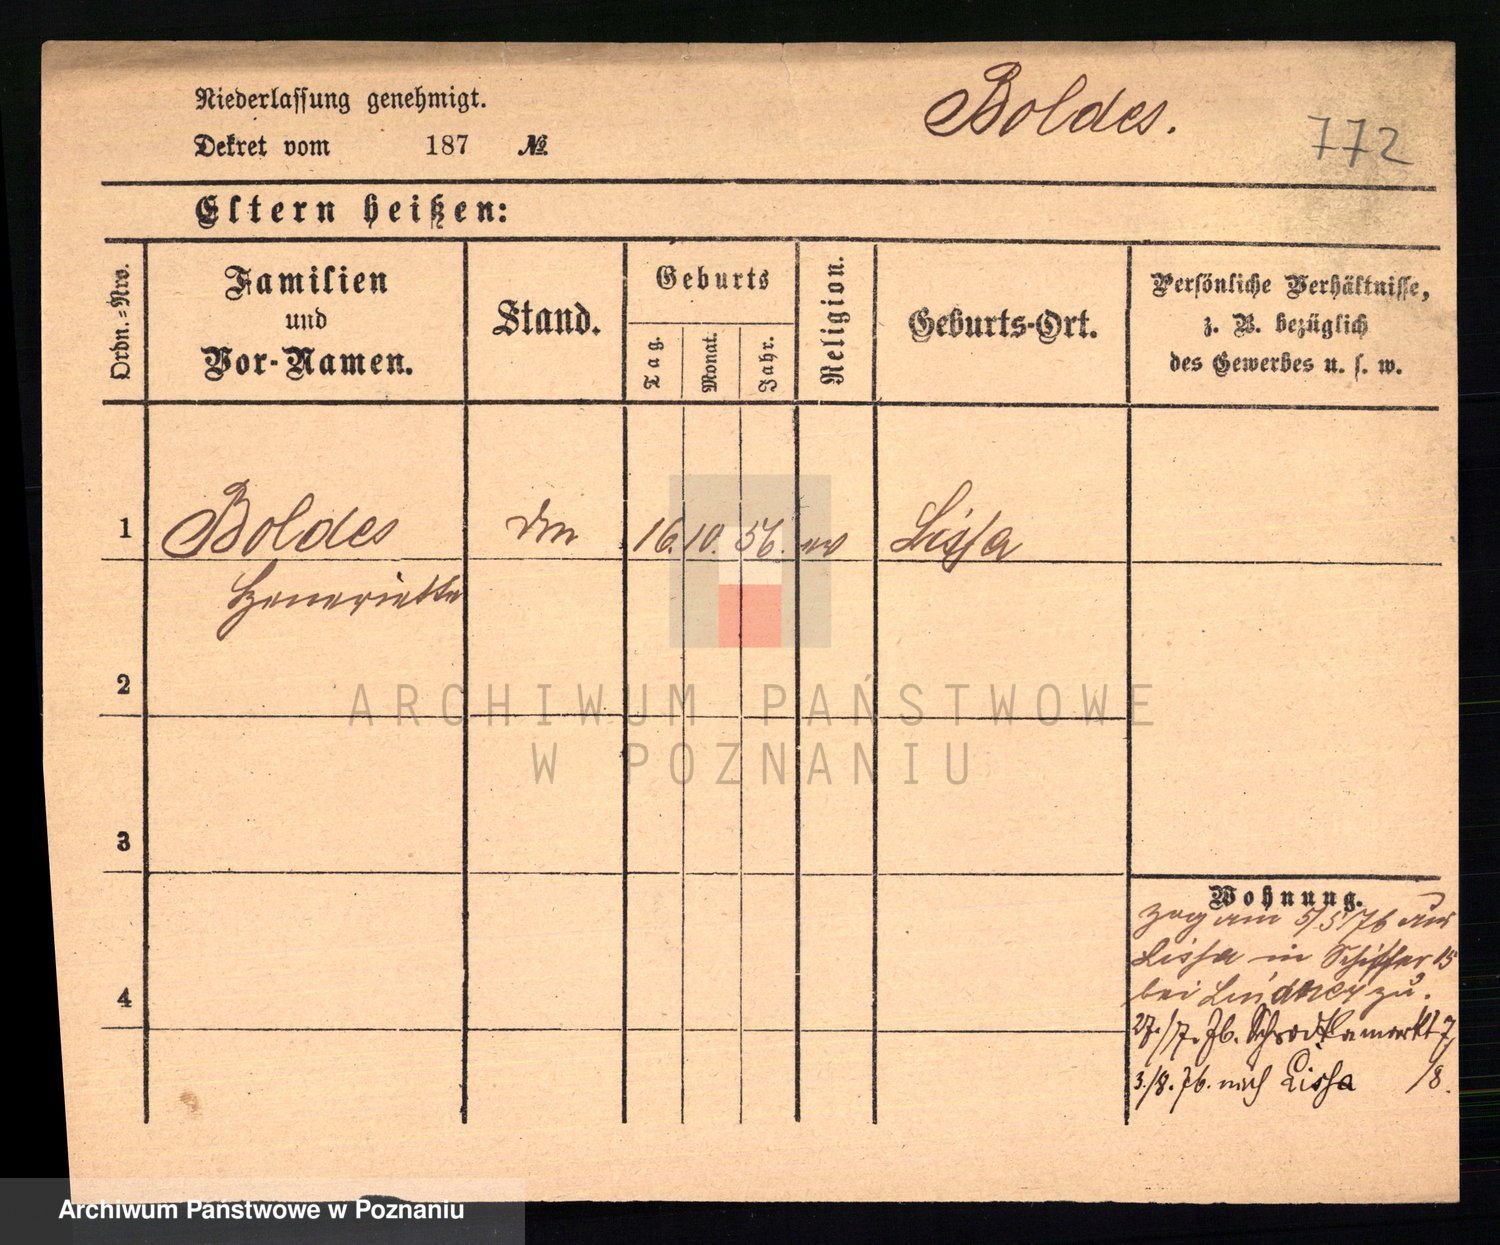 Niederlassung genehmigt.
Dekret vom 187 №
Boldes.
772
Eltern heißen:
Ordn.=Nro.
Familien
und
Vor-Namen.
Stand.
Geburts
Tag.
Monat.
Jahr.
Religion.
Geburts-Ort.
Persönliche Verhältnisse,
z. B. bezüglich
des Gewerbes u. s. w.
1 Boldes 16. 10. 56. ev Lissa
Henriette
2
ARCHIWUM PAŃSTWOWE
W POZNANIU
3
Wohnung.
zog am 5/5/76 aus
Lissa in Schiffer 15
bei Lindner zu.
27./7. 76. Schrodkamarkt 7
3./8. 76. nach Lissa /8.
4
Archiwum Państwowe w Poznaniu